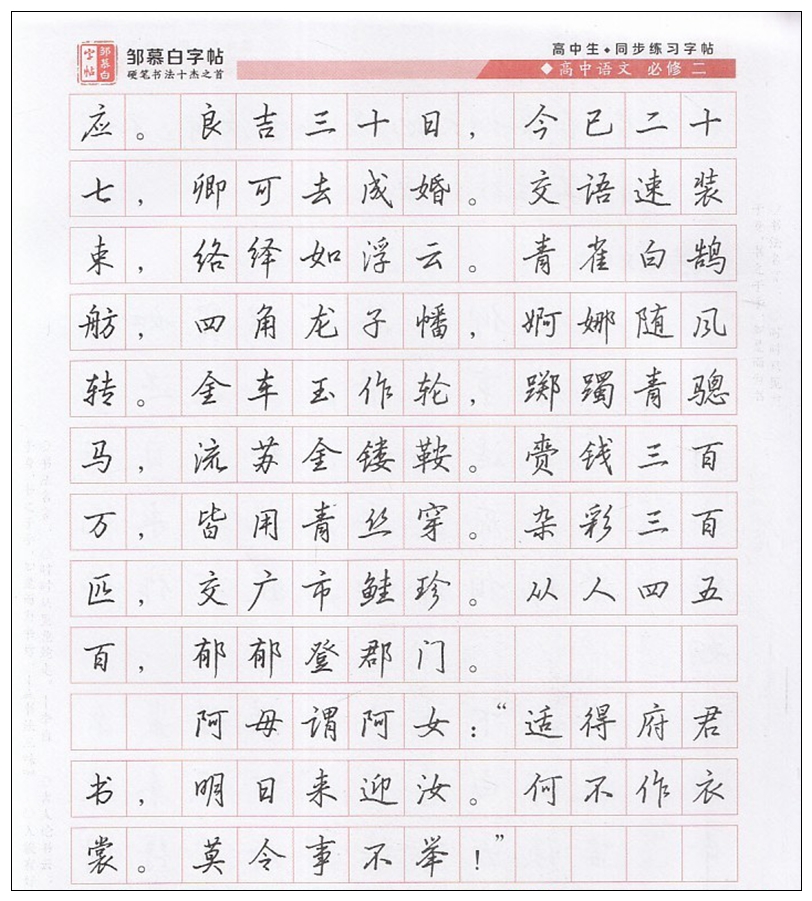 邹慕白字帖
邹慕白字帖
硬笔书法十杰之首
高中生◆同步练习字帖
◆高中语文 必修 二
应。良吉三十日，今已二十
七，卿可去成婚。交语速装
束，络绎如浮云。青雀白鹄
舫，四角龙子幡，婀娜随风
转。金车玉作轮，踯躅青骢
马，流苏金镂鞍。赍钱三百
万，皆用青丝穿。杂彩三百
匹，交广市鲑珍。从人四五
百，郁郁登郡门。
阿母谓阿女：“适得府君
书，明日来迎汝。何不作衣
裳。莫令事不举！”